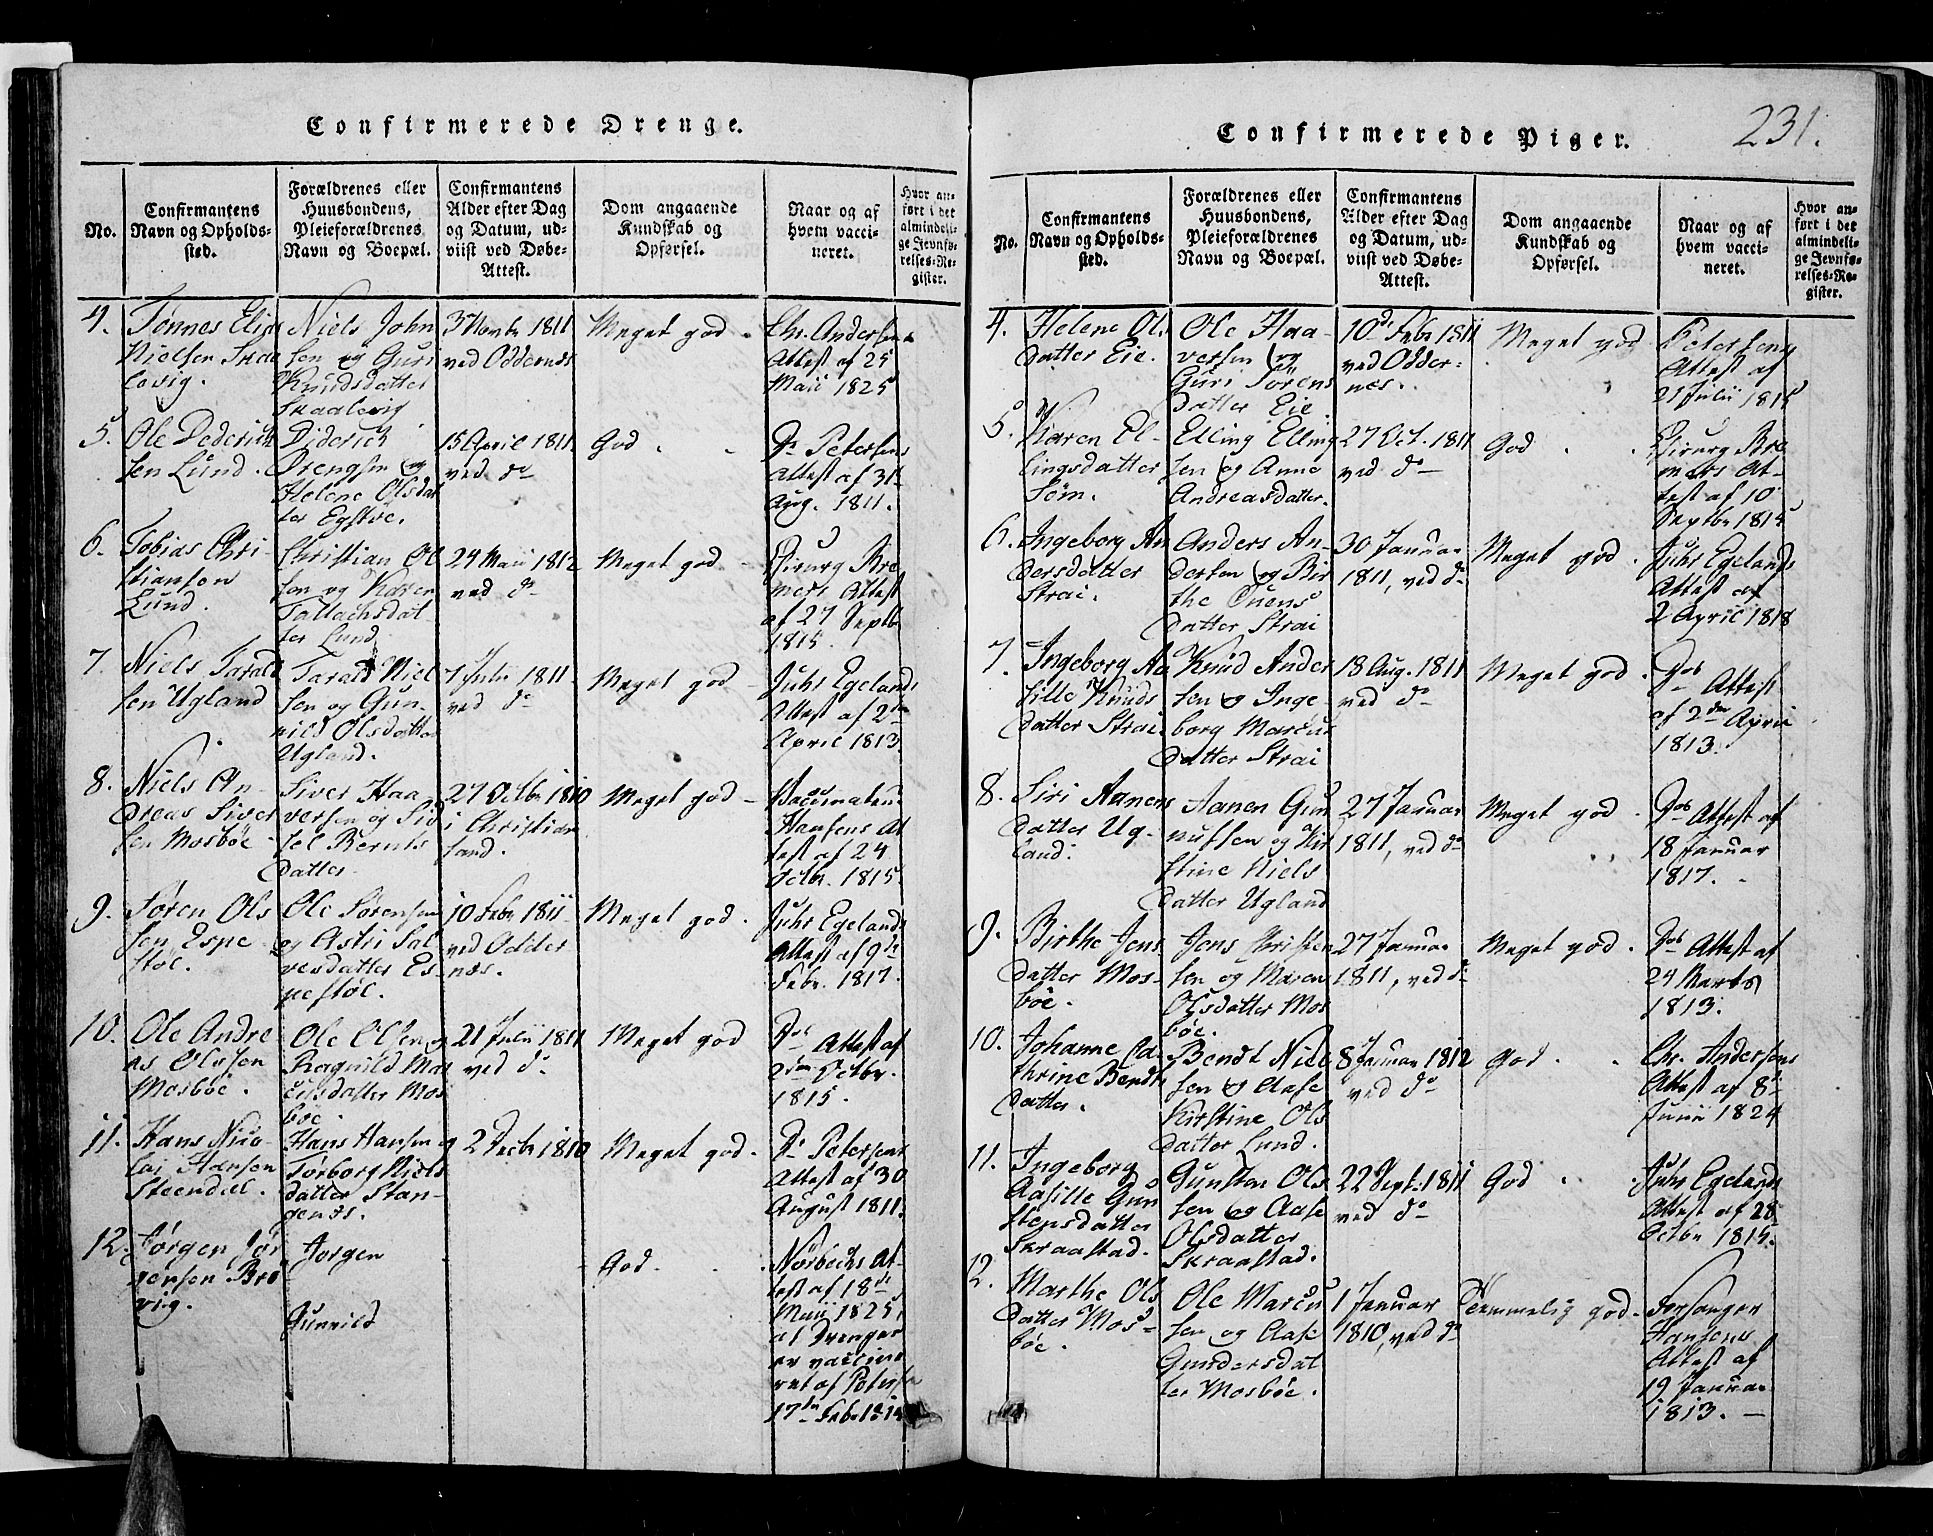 Confirmerede Drenge.
No.
Confirmantens
Navn og Opholds-
sted.
Forældrenes eller
Huusbondens,
Pleieforældrenes
Navn og Boepæl.
Confirmantens
Alder efter Dag
og Datum, ud-
viist ved Døbe-
Attest.
Dom angaaende
Kundskab og
Opførsel.
Naar og af
hvem vacci-
neret.
Hvor an-
ført i det
almindeli-
ge Jevnfø-
relses-Re-
gister.
4.
Tønnes Elias
Nielsen Skaa
levig.
Niels John
sen og Guri
Knudsdatter
Skaalevig
3 Novbr 1811
ved Oddernes
Meget god
Chr. Andersens
Attest af 25
Maii 1825
5.
Ole Dederich
sen Lund.
Diderich
Drengsen og
Helene Olsdat
ter Egstøe.
15 April 1811
ved do
God
Dr Petersens
Attest af 31
Aug. 1811.
6.
Tobias Chri-
stiansen
Lund.
Christian Ol
sen og Karen
Tallachsdat-
ter Lund
24 Maii 1812
ved do
Meget god
Chirurg Bre
mers Attest
af 27 Septbr
1815.
7.
Niels Tarald
sen Ugland
Tarald Niel
sen og Gun-
nild Olsdatter
Ugland.
7 Julii 1811
ved do
Meget god
Juhs Egelands
Attest af 2den
April 1813
8.
Niels An-
dreas Siver
sen Mosbøe
Siver Haa-
versen og Sid
sel Bernts
datter
27 Octbr 1810
i Christian
sand.
Meget god
Vaccinateur
Hansens At
test af 24
Octbr. 1815
9.
Søren Ols
sen Espe
støe.
Ole Sørensen
og Astri Sal
vesdatter Es-
pestøe.
10 Febr 1811
ved Odder
næs.
Meget god.
Juhs Egelands
Attest af 9de
Febr. 1817.
10.
Ole Andre
as Olssen
Mosbøe.
Ole Olsen og
Ragnild Mar
cusdatter Mos
bøe.
21 Julii 1811
ved do
Meget god
Dos Attest af
2den Octbr.
1815.
11.
Hans Nico-
lai Hansen
Steendæl.
Hans Hansen og
Torborg Niels
datter Stan-
gends.
2 Decbr 1810
Meget god.
Dr Petersens
Attest af 30
August 1811.
12.
Jørgen Jør
gensen Bro
vig.
Jørgen
Gunnild
God.
Nørbechs At-
test af 18de
Maii 1825,
at Drengen
er vaccine
ret af Petersen
17de Febr
Confirmerede Piger.
231.
No.
Confirmantens
Navn og Opholds-
sted.
Forældrenes eller
Huusbondens,
Pleieforældrenes
Navn og Boepæl.
Confirmantens
Alder efter Dag
og Datum, ud-
viist ved Døbe-
Attest.
Dom angaaende
Kundskab og
Opførsel.
Naar og af
hvem vacci-
neret.
Hvor an-
ført i det
almindeli-
ge Jevnfø-
relses-Re-
gister.
4.
Helene Ols
datter Eie.
Ole Haa-
versen og
Guri Sørens
datter Eie
10de Febr 1811
ved Odder-
næs.
Meget god
Petersens
Attest af
21 Julii 1815
5.
Karen El-
lingsdatter
Søm.
Elling Elling
sen og Anne
Andreasdatter.
27 Oct. 1811
ved do
God
Chirurg Bre
mers At-
test af 10
Septbr 1815
6.
Ingeborg An
dersdatter
Strai.
Anders An-
dersen og Bir
the Ouens
datter Strai
30 Januar
1811, ved do
Meget god.
Juhs Egelands
Attest af
2 April 1818
7.
Ingeborg Aa
sille Knuds
datter Strai.
Knud Ander
sen og Inge-
borg Marcus
datter Strai
18 Aug. 1811
ved do
Meget god.
Dos Attest
af 2den April
1813.
8.
Siri Aanens
datter Ug-
land.
Aanen Gun
nulfsen og Kir
stine Niels
datter Ugland
27 Januar
1811, ved do
Meget god.
Dos Attest af
18 Januar
1817.
9.
Birthe Jens
datter Mos-
bøe.
Jens Christen
sen og Maren
Olsdatter Mos
bøe.
27 Januar
1811, ved do
Meget god.
Dos Attest af
24 Marts
1813.
10.
Johanne Ca-
thrine Bendt
datter.
Bendt Niel
sen og Aase
Kirstine Ols
datter Lund.
8 Januar 1812
ved do
God.
Chr. Andersens
Attest af 8de
Junii 1824
11.
Ingeborg
Aasille Gun
stensdatter
Skraastad.
Gunsten Ols
sen og Aase
Olsdatter
Skraastad.
22 Sept. 1811
ved do
God
Juhs Egelands
Attest af 28
Octbr 1815.
12.
Marthe Ols
datter Mos-
bøe.
Ole Marcu
sen og Aase
Gundersdat
ter Mosbøe.
1 Januar
1810, ved do
Temmelig god.
Forsanger
Hansens
Attest af
19 Januar
1813.